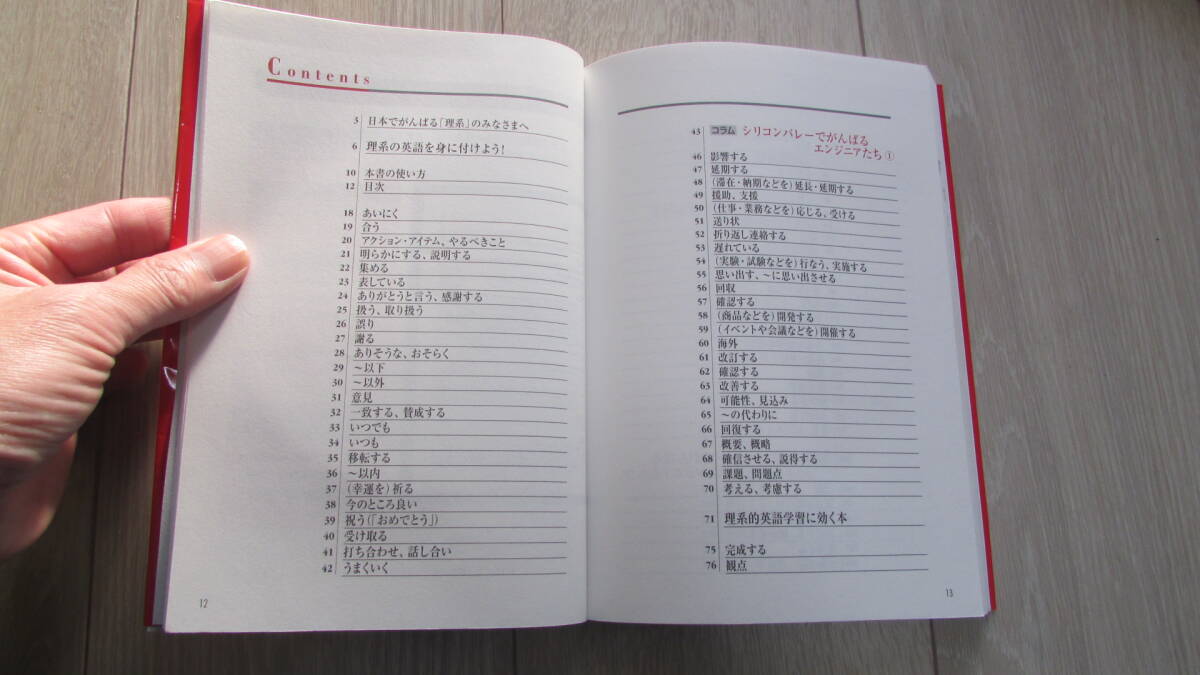 Contents
3 日本でがんばる「理系」のみなさまへ
6 理系の英語を身に付けよう!
10 本書の使い方
12 目次
18 あいにく
19 合う
20 アクション・アイテム、やるべきこと
21 明らかにする、説明する
22 集める
23 表している
24 ありがとうと言う、感謝する
25 扱う、取り扱う
26 誤り
27 謝る
28 ありそうな、おそらく
29 〜以下
30 〜以外
31 意見
32 一致する、賛成する
33 いつでも
34 いつも
35 移転する
36 〜以内
37 (幸運を)祈る
38 今のところ良い
39 祝う(「おめでとう」)
40 受け取る
41 打ち合わせ、話し合い
42 うまくいく
12
43 コラム シリコンバレーでがんばる
エンジニアたち①
46 影響する
47 延期する
48 (滞在・納期などを)延長・延期する
49 援助、支援
50 (仕事・業務などを)応じる、受ける
51 送り状
52 折り返し連絡する
53 遅れている
54 (実験・試験などを)行なう、実施する
55 思い出す、〜に思い出させる
56 回収
57 確認する
58 (商品などを)開発する
59 (イベントや会議などを)開催する
60 海外
61 改訂する
62 確認する
63 改善する
64 可能性、見込み
65 〜の代わりに
66 回復する
67 概要、概略
68 確信させる、説得する
69 課題、問題点
70 考える、考慮する
71 理系的英語学習に効く本
75 完成する
76 観点
13